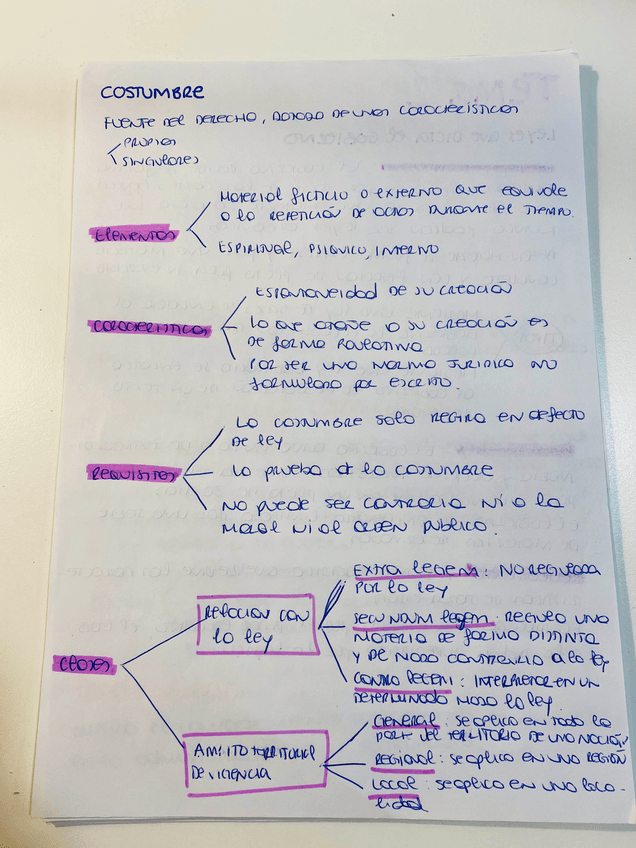 COSTUMBRE
FUENTE DEL DERECHO, DOTADA DE UNAS CARACTERÍSTICAS
PROPIAS
SINGULARES
ELEMENTOS
MATERIAL FICTICIO O EXTERNO QUE EQUIVALE
A LA REPETICIÓN DE ACTOS DURANTE EL TIEMPO.
ESPIRITUAL, PSIQUICO, INTERNO
CARACTERISTICAS
ESPONTANEIDAD DE SU CREACIÓN
LO QUE ATAÑE A SU CREACIÓN ES
DE FORMA
POR SER UNA NORMA JURIDICA NO
FORMULADA POR ESCRITO.
REQUISITOS
LA COSTUMBRE SOLO REGIRA EN DEFECTO
DE LEY
LA PRUEBA d LA COSTUMBRE
NO PUEDE SER CONTRARIA NI A LA
MORAL NI AL ORDEN PUBLICO.
CLASES
RELACION CON
LA LEY.
EXTRA LEGEM: NO REGULADA
POR LA LEY
SECUNDUM LEGEM: REGULA UNA
MATERIA DE FORMA DISTINTA
Y DE MODO CONTRARIO A LA LEY
CONTRA LEGEM: INTERPRETAR EN UN
DETERMINADO MODO LA LEY.
AMBITO TERRITORIAL
DE VIGENCIA
GENERAL: SE APLICA EN TODA LA
PARTE DEL TERRITORIO DE UNA NACIÓN
REGIONAL: SE APLICA EN UNA REGIÓN
LOCAL: SE APLICA EN UNA LOCA-
LIDAD